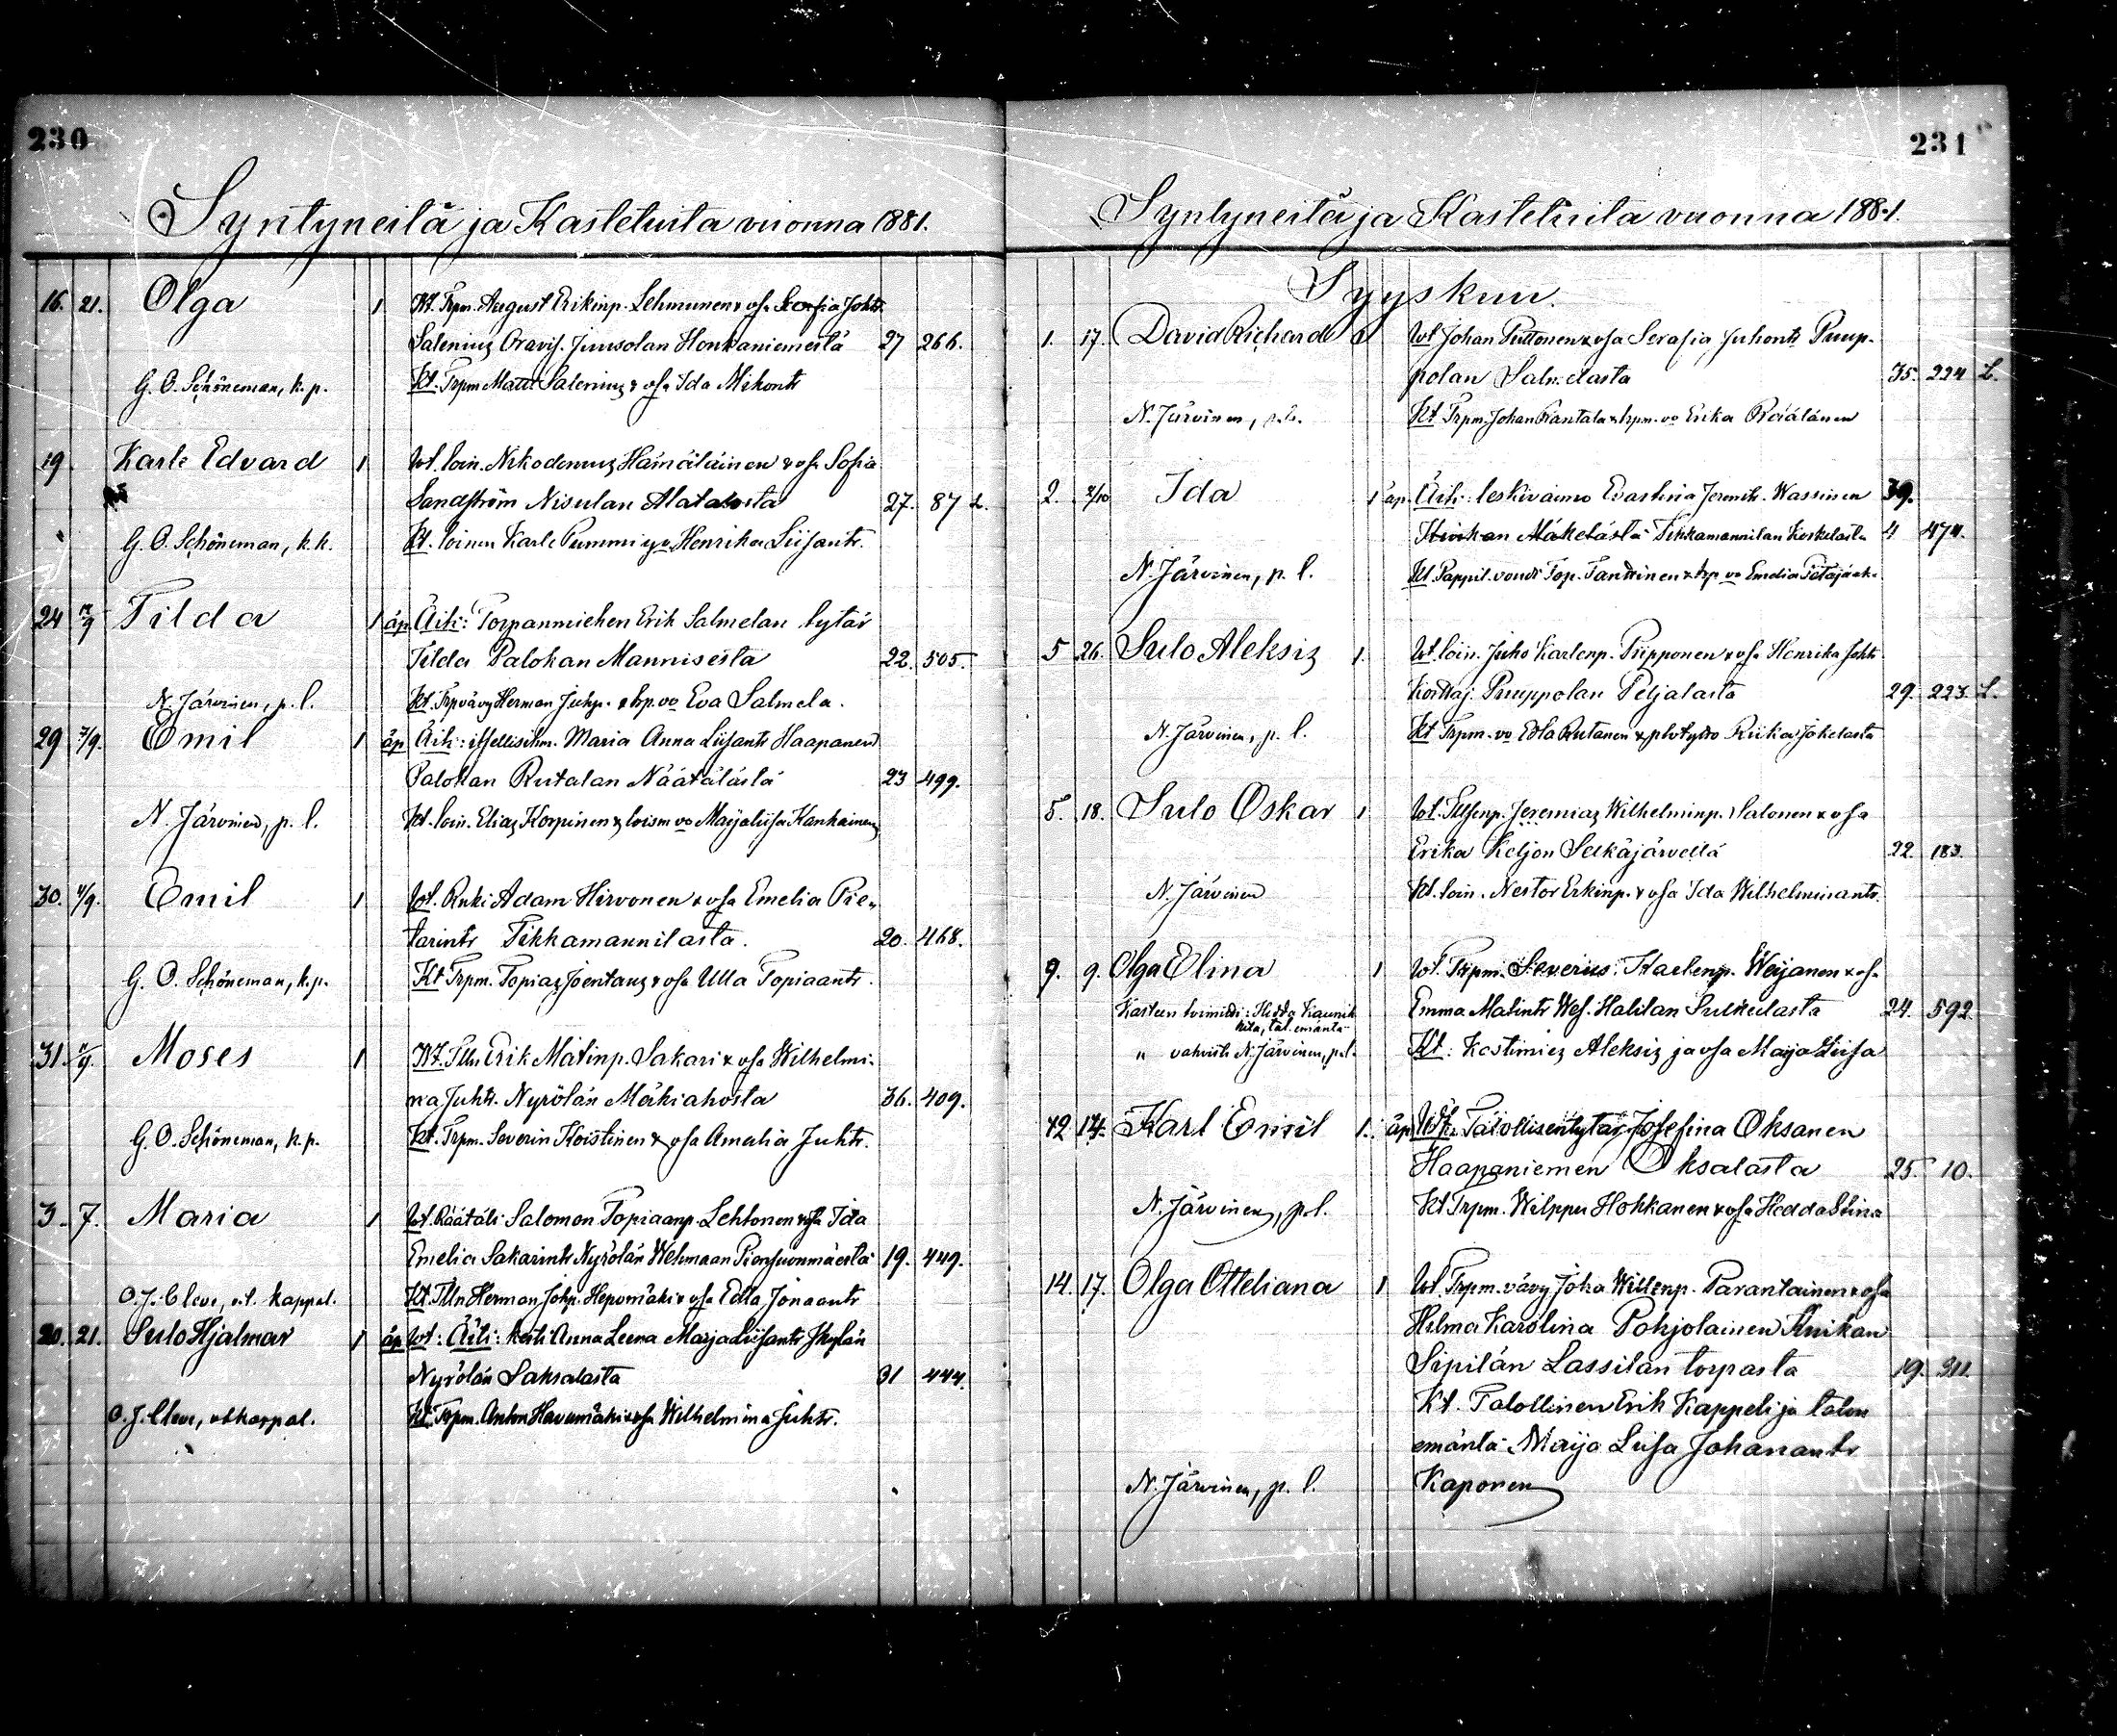 230
Syntyneitä ja Kastetuita vuonna 1881.
16. 21. Olga 1 Wt. Trpm. August Erikinp. Lehmunen & vsa Serafia Joht.
Salenius Oravis. Juusolan Honkaniemestä 27 266.
G. O. Schöneman, k. p. Kt. Trpm Matti Salenius & vsa Ida Mikontr
19. Karle Edvard 1 Wt. loin. Nikodemus Hämäläinen & vsa Sofia
Sandström Nisulan Alatalosta 27. 87 L.
G. O. Schöneman, k. k. Kt. loinen Karle Pummi ja Henrika Liisantr.
24 Tilda 1 äp. Äiti: Torpanmiehen Erik Salmelan tytär
Tilda Palokan Mannisesta 22. 505.
N. Järvinen, p. l. Kt. Trpvävy Herman Juhp. & trp. vo Eva Salmela.
29 7/9. Emil 1 äp Äiti: itsellischm. Maria Anna Liisantr Haapanen
Palokan Rutalan Näätälästä 23 499.
N. Järvinen, p. l. Kt. loin. Elias Korpinen & loism vo Maijaliisa Kankainen
30. 4/9. Emil 1 Wt. Ruki Adam Hirvonen & vsa Emelia Pie-
tarintr Tikkamannilasta. 20. 468.
G. O. Schöneman, k. p. Kt Trpm. Topias Joentaus & vsa Ulla Topiaantr.
31. Moses 1 Wt. Tlln Erik Matinp. Sakari & vsa Wilhelmi-
na Juhtr. Nyrölän Mäkiahosta 36. 409.
G. O. Schöneman, k. p. Kt. Trpm. Severin Koistinen & vsa Amalia Juhtr.
3. 7. Maria 1 Wt. Räätäli Salomon Topiaanp. Lehtonen & vsa Ida
Emelia Sakarintr Nyrölän Wehmaan Piensuonmäestä 19. 449.
O. J. Cleve, v.t. kappal. Kt. Tlln Herman Johp. Heponmäki & vsa Edla Jonaantr
20. 21. Sulo Hjalmar 1 äp Wt: Äiti: Anna Leena Marja Liisantr
Nyrölän Saksalasta 31 444.
O. J. Cleve, vt kappal. Kt. Trpm. Anton Havumäki & vsa Wilhelmina Juhtr.
231
Syntyneitä ja Kastetuita vuonna 1881.
Syyskuu.
1. 17. David Richard 1 Wt Johan Puttonen & vsa Serafia Juhontr Puup-
polan Salmelasta 35. 224 L.
N. Järvinen, p. l. Kt Trpm. Johan Rantala & trpm. vo Erika Pääläinen
2. 2/10 Ida 1 äp. Äiti: leskivaimo Evastina Jeremtr. Wassinen 39.
Mäkelästä Tikkamannilan Koskelasta 4 474.
N. Järvinen, p. l. Kt. Pappil. vouti Top. Tanttinen & trp vo Emelia
5 26. Sulo Aleksis 1. Wt loin. Juho Karlenp. Piipponen & vsa Henrika Joht.
Puuppolan Peljalasta 29. 223 L.
N. Järvinen, p. l. Kt Trpm. vo Edla Rutanen & Riika Jokelasta
5. 18. Sulo Oskar 1. Wt. Jeremias Wilhelminp. Salonen & vsa
Erika Keljon Selkäjärvellä 22. 183.
N. Järvinen Kt. loin. Nestor Erkinp. & vsa Ida Wilhelminantr.
9. 9. Olga Elina 1 Wt. Trpm. Severius Karlenp. Weijanen & vsa
Kasteen toimitti: Hedda Kaunis-
kita, tal. emäntä
Emma Matintr Wes. Halilan Sulkulasta 24. 592
" vahvisti N. Järvinen, p. l. Kt: Kostimies Aleksis ja vsa Maija Liisa
12 14. Karl Emil 1. äp Talollisentytär Josefina Oksanen
Haapaniemen Oksalasta 25. 10.
N. Järvinen, p. l. Kt Trpm. Wilppu Hokkanen & vsa Hedda Stina
14. 17. Olga Otteliana 1 Wt Trpm. vävy Joha Willenp. Parantainen & vsa
Hilma Karolina Pohjolainen
Sipilän Lassilan torpasta 19. 311.
Kt. Talollinen Erik Kappeli ja talon
emäntä Maija Liisa Johanantr
N. Järvinen, p. l. Kaponen